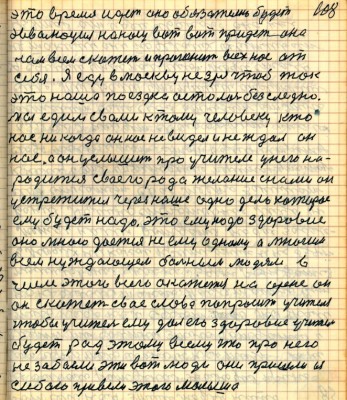 это время идет оно обязательно будет 608
эвволюция на ному вот вот придет она
нам всем скажет и прогонит всех нас от
себя. Я еду в москву не зря чтоб ток
это наша поездка осталось безследно.
мы едим свами к тому человеку кто
нас никогда он нас невидел и не ждал он
нас, а он услышит про учителя унего на-
родится своего рода желание снами он
устретится через наше одно дело которое
ему будет надо. это ему надо здоровие
оно мною дается не ему одному а многим
всем нуждающем больным людям в
чием этого всего окажется на арене он
он скажет свае слово попросит учителя
чтобы учитель ему дал его здоровие учитель
будет рад этому всему что про него
не забыли эти вот люди они пришли и
с собою привели этого малыша